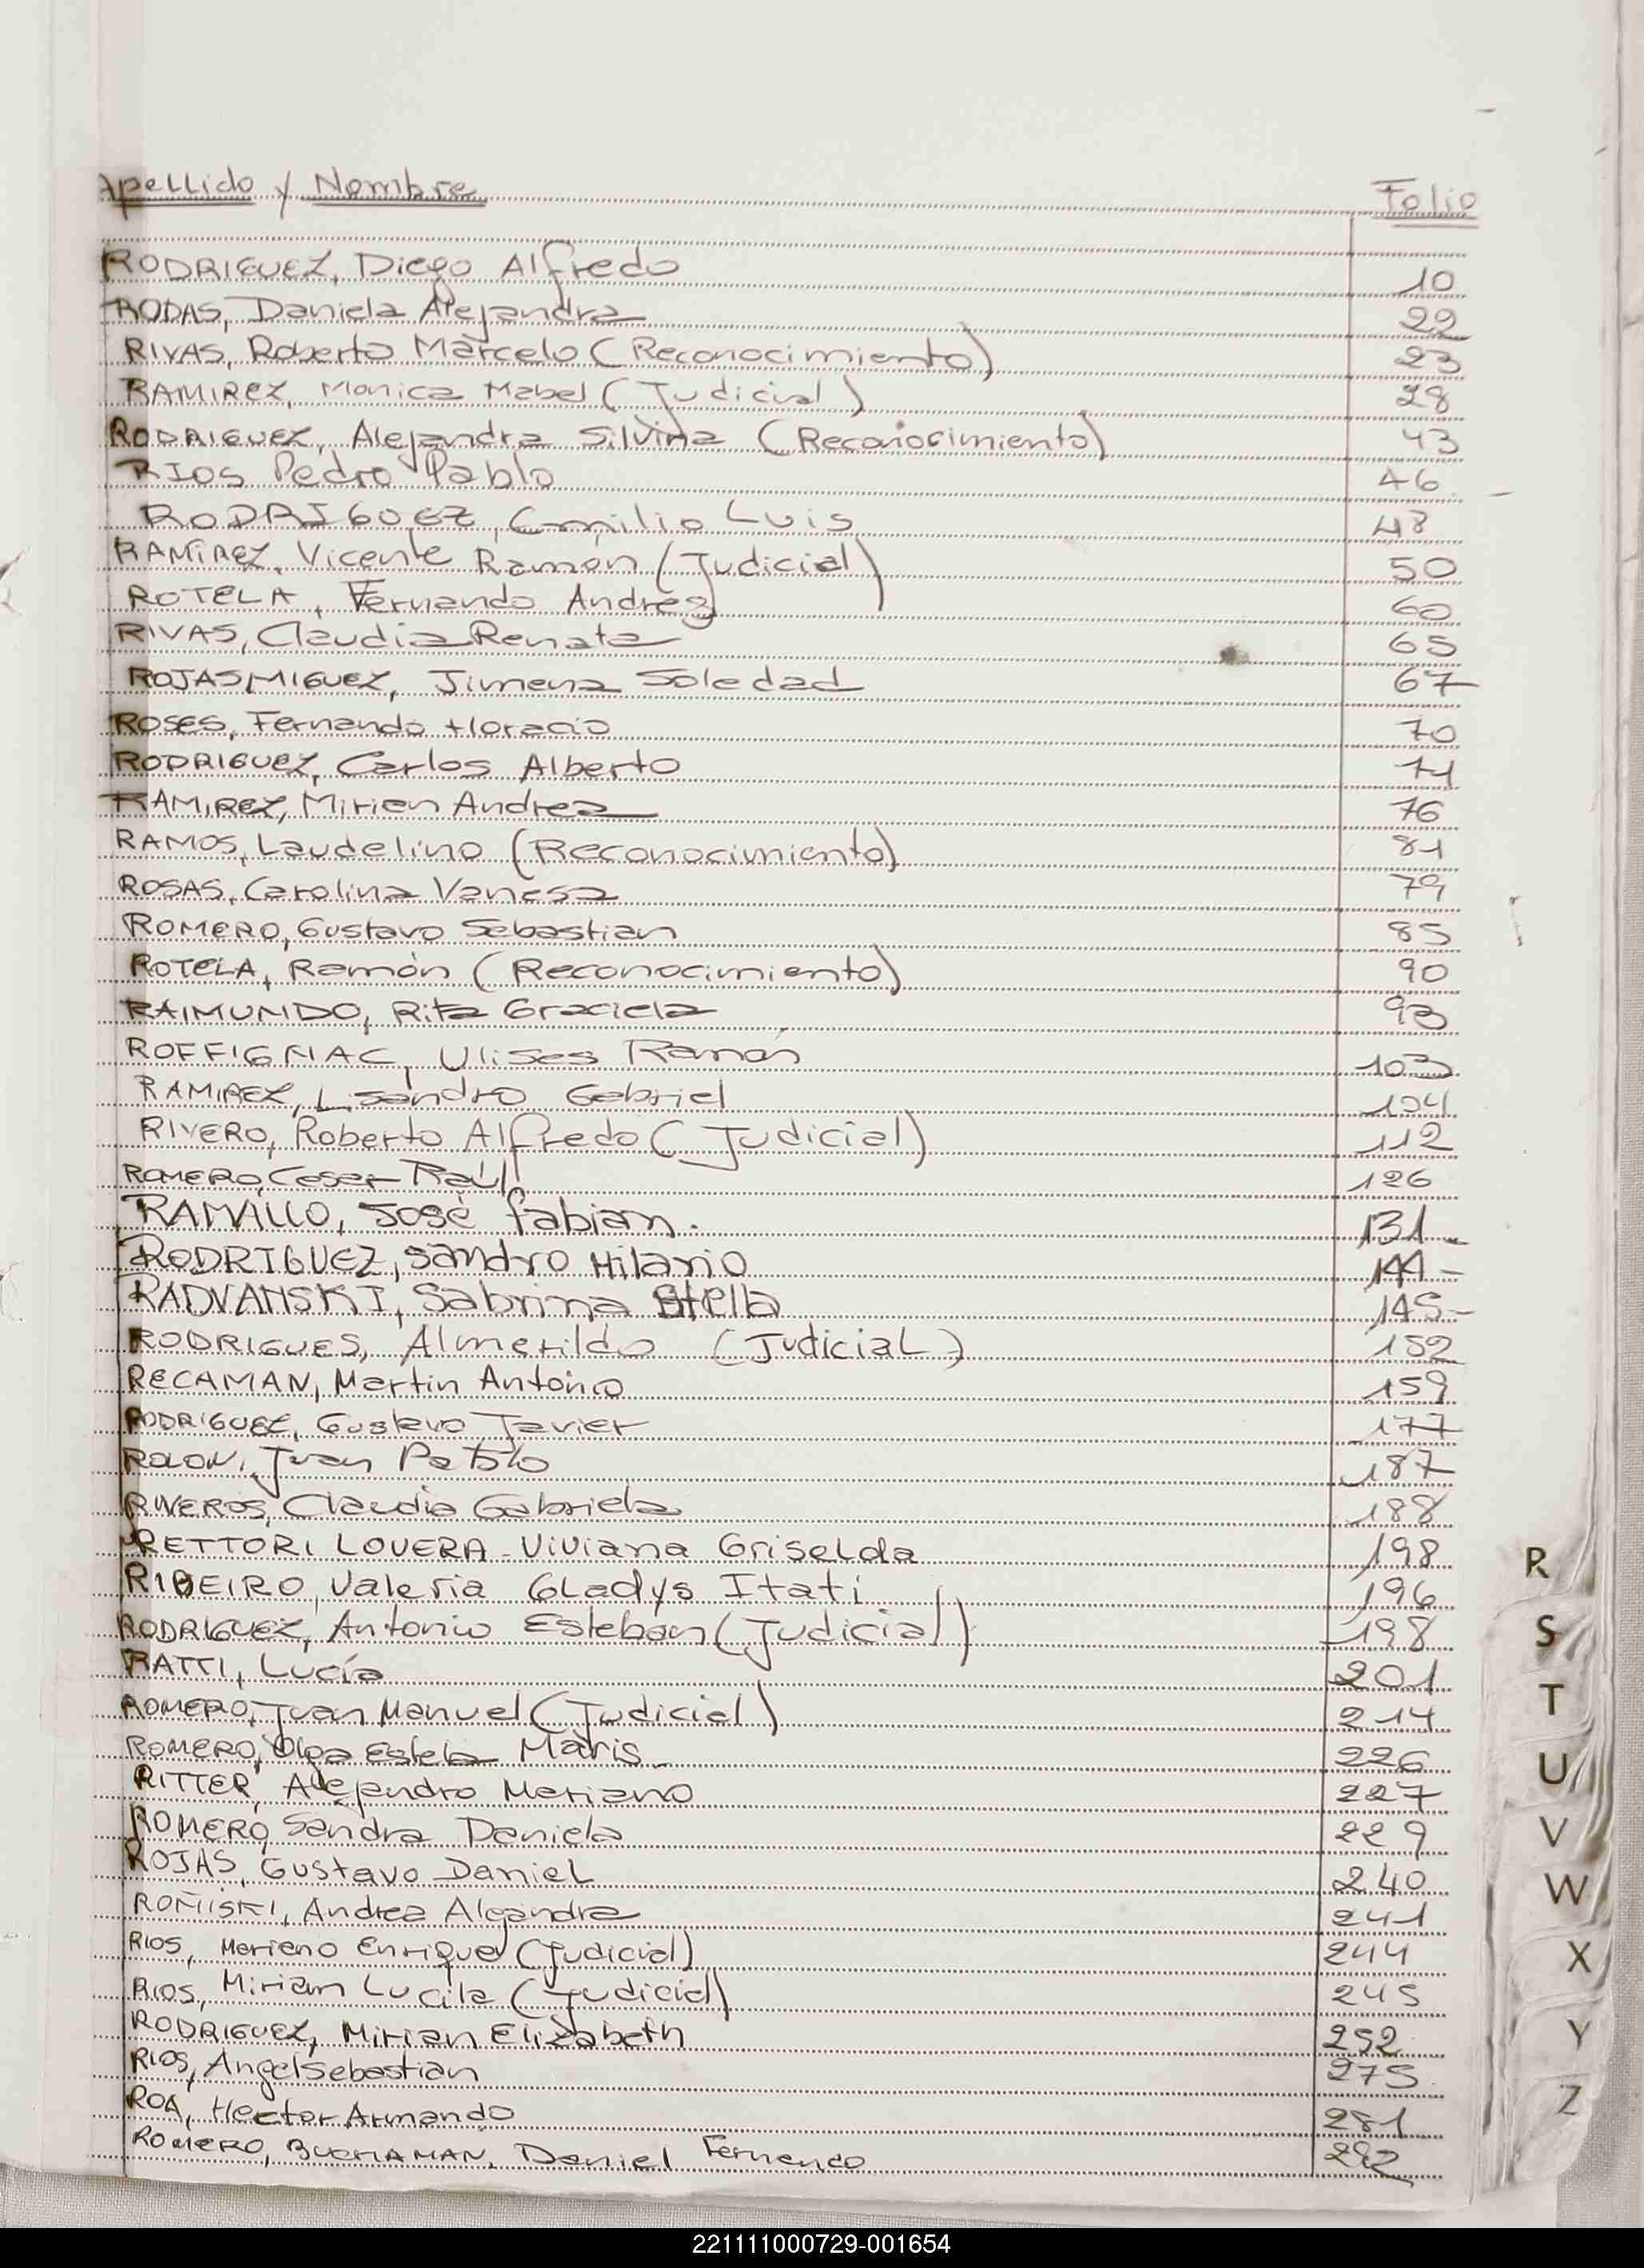 Apellido y Nombre Folio
RODRIGUEZ, Diego Alfredo 10
RODAS, Daniela Alejandra 22
RIVAS, Roberto Marcelo (Reconocimiento) 23
RAMIREZ, Monica Mabel (Judicial) 28
RODRIGUEZ, Alejandra Silvina (Reconocimiento) 43
RIOS Pedro Pablo 46
RODRIGUEZ, Emilio Luis 48
RAMIREZ, Vicente Ramón (Judicial) 50
ROTELA, Fernando Andres 60
RIVAS, Claudia Renata 65
ROJAS MIGUEZ, Jimena Soledad 67
ROSES, Fernando Horacio 70
RODRIGUEZ, Carlos Alberto 71
RAMIREZ, Mirien Andrea 76
RAMOS, Laudelino (Reconocimiento) 81
ROSAS, Carolina Vanesa 79
ROMERO, Gustavo Sebastian 85
ROTELA, Ramón (Reconocimiento) 90
RAIMUNDO, Rita Graciela 93
ROFFIGNAC, Ulises Ramón 103
RAMIREZ, Lisandro Gabriel 104
RIVERO, Roberto Alfredo (Judicial) 112
ROMERO, Cesar Raúl 126
RAMALLO, José fabian. 131
RODRIGUEZ, Sandro Hilario 144
RADVANSKI, Sabrina Stella 145
RODRIGUES, Almerildo (Judicial) 152
RECAMAN, Martin Antonio 159
RODRIGUEZ, Gustavo Javier 177
ROLON, Juan Pablo 187
RIVEROS, Claudia Gabriela 188
RETTORI LOVERA - Viviana Griselda 198
RIBEIRO, Valeria Gladys Itatí 196
RODRIGUEZ, Antonio Esteban (Judicial) 198
RATTI, Lucía 201
ROMERO, Juan Manuel (Judicial) 214
ROMERO, Olga Estela Maris 226
RITTER, Alejandro Mariano 227
ROMERO, Sandra Daniela 229
ROJAS, Gustavo Daniel 240
ROÑISKI, Andrea Alejandra 241
RIOS, Mariano Enrique (Judicial) 244
RIOS, Miriam Lucila (Judicial) 245
RODRIGUEZ, Mirian Elizabeth 252
RIOS, Angel Sebastian 275
ROA, Hector Armando 281
ROMERO, BUCHAMAN, Daniel Fernando 282
R
S
T
U
V
W
X
Y
Z
221111000729-001654